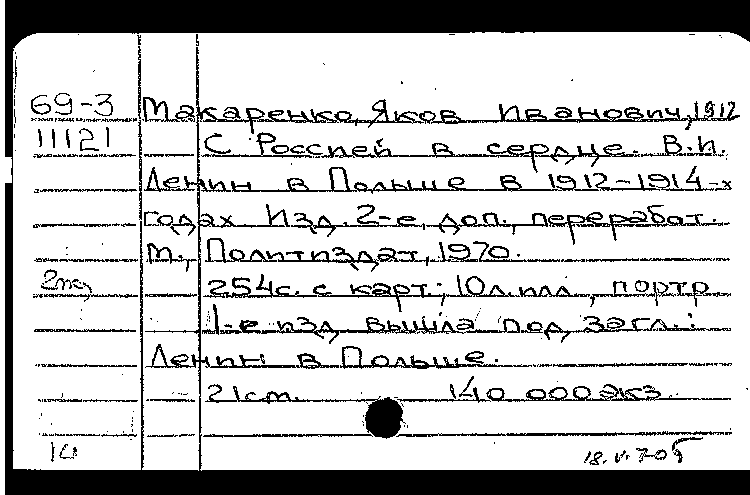 69-3 Макаренко, Яков Иванович, 1912
11121 С Россией в сердце. В.И.
Ленин в Польше в 1912-1914-х
годах Изд. 2-е, доп., переработ.
М., Политиздат, 1970.
254с. с карт.; 10л. илл., портр.
1-е изд. вышла под загл.:
Ленин в Польше.
21см. 140 000 экз